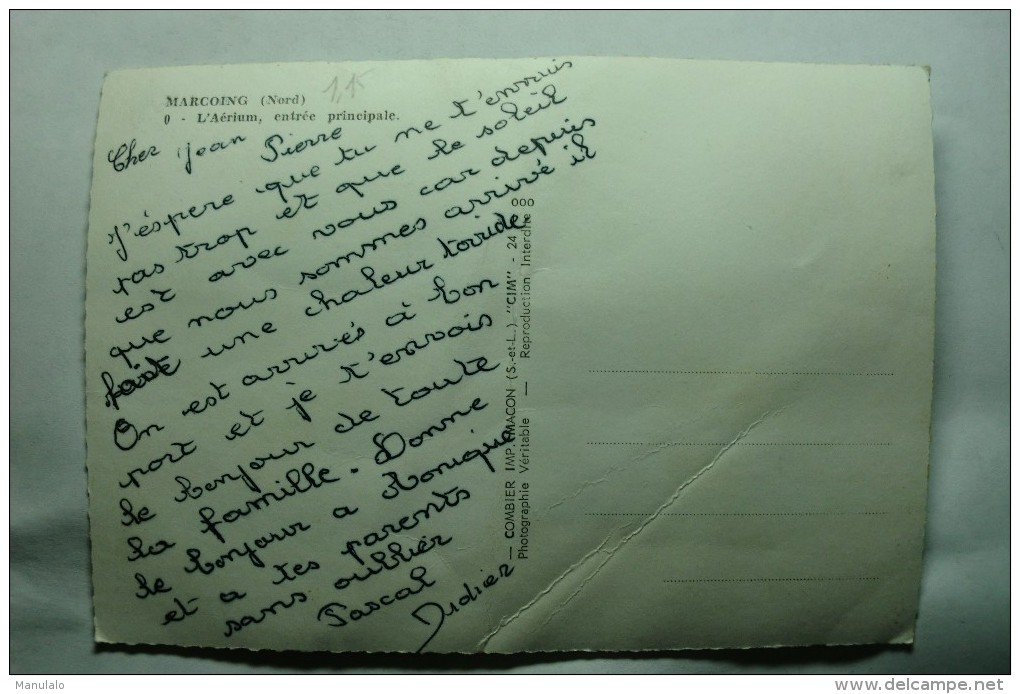 MARCOING (Nord)
0 - L'Aérium, entrée principale.
1,15
Cher Jean Pierre
J'éspere que tu ne t'ennuis
pas trop et que le soleil
est avec vous car depuis
que nous sommes arrivé il
fait une chaleur torride
On est arrivés à bon
port et je t'envois
le bonjour de toute
la famille. Donne
le bonjour a Monique
et a tes parents
sans oublier
Pascal
Didier
COMBIER IMP. MACON (S.-et-L.) "CIM" - 24 000
Photographie Véritable — Reproduction Interdite
Manulalo
www.delcampe.net